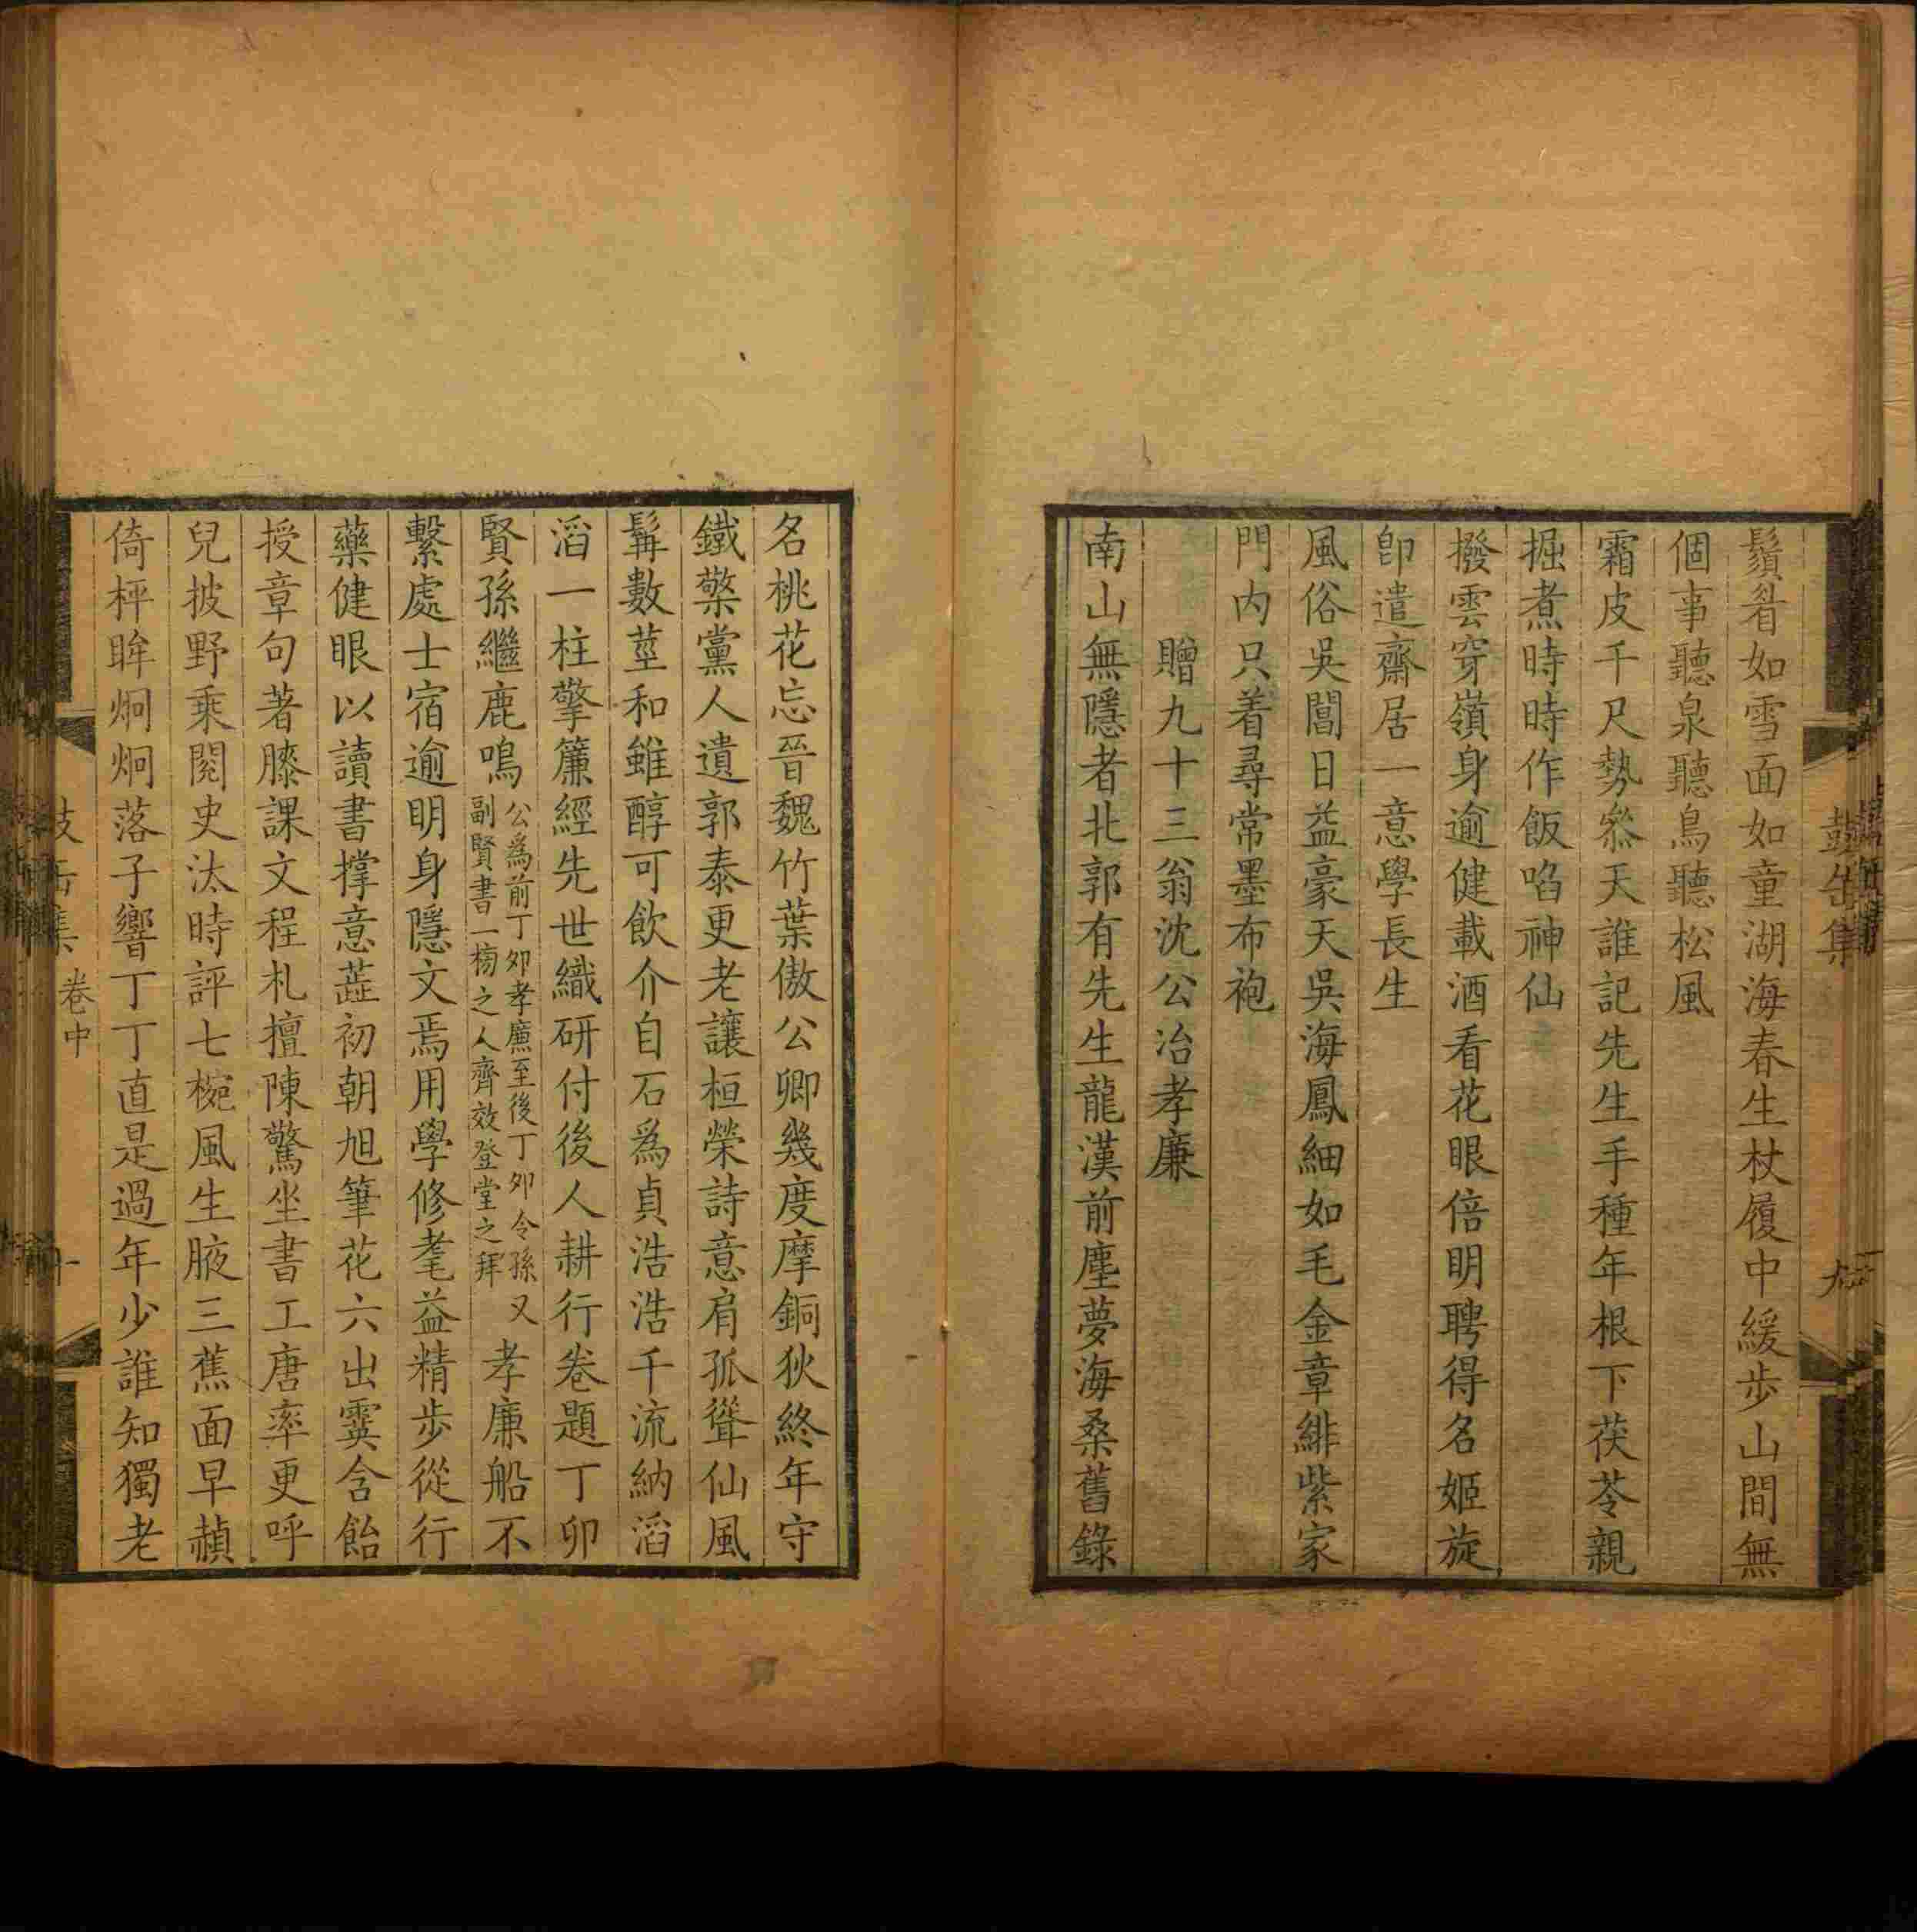 鬚眉如雪面如童湖海春生杖履中緩步山間無
個事聽泉聽鳥聽松風
霜皮千尺勢參天誰記先生手種年根下茯苓親
掘煮時時作飯啗神仙
撥雲穿嶺身逾健載酒看花眼倍明聘得名姬旋
卽遣齋居一意學長生
風俗吳閶日益豪天吳海鳳細如毛金章緋紫家
門內只着尋常墨布袍
贈九十三翁沈公治孝廉
南山無隱者北郭有先生龍漢前塵夢海桑舊錄
名桃花忘晉魏竹葉傲公卿幾度摩銅狄終年守
鐵檠黨人遺郭泰更老讓桓榮詩意肩孤聳仙風
髯數莖和雖醇可飲介自石爲貞浩浩千流納滔
滔一柱擎簾經先世織研付後人耕行卷題丁卯
賢孫繼鹿鳴公爲前丁卯孝廉至後丁卯令孫又副賢書一榜之人齊效登堂之拜孝廉船不
繫處士宿逾明身隱文焉用學修耄益精步從行
藥健眼以讀書撑意蕋初朝旭筆花六出霙含飴
授章句著膝課文程札擅陳驚坐書工唐率更呼
兒披野乘閱史汰時評七椀風生腋三蕉面早赬
倚枰眸炯炯落子響丁丁直是過年少誰知獨老
鼓缶集
卷中